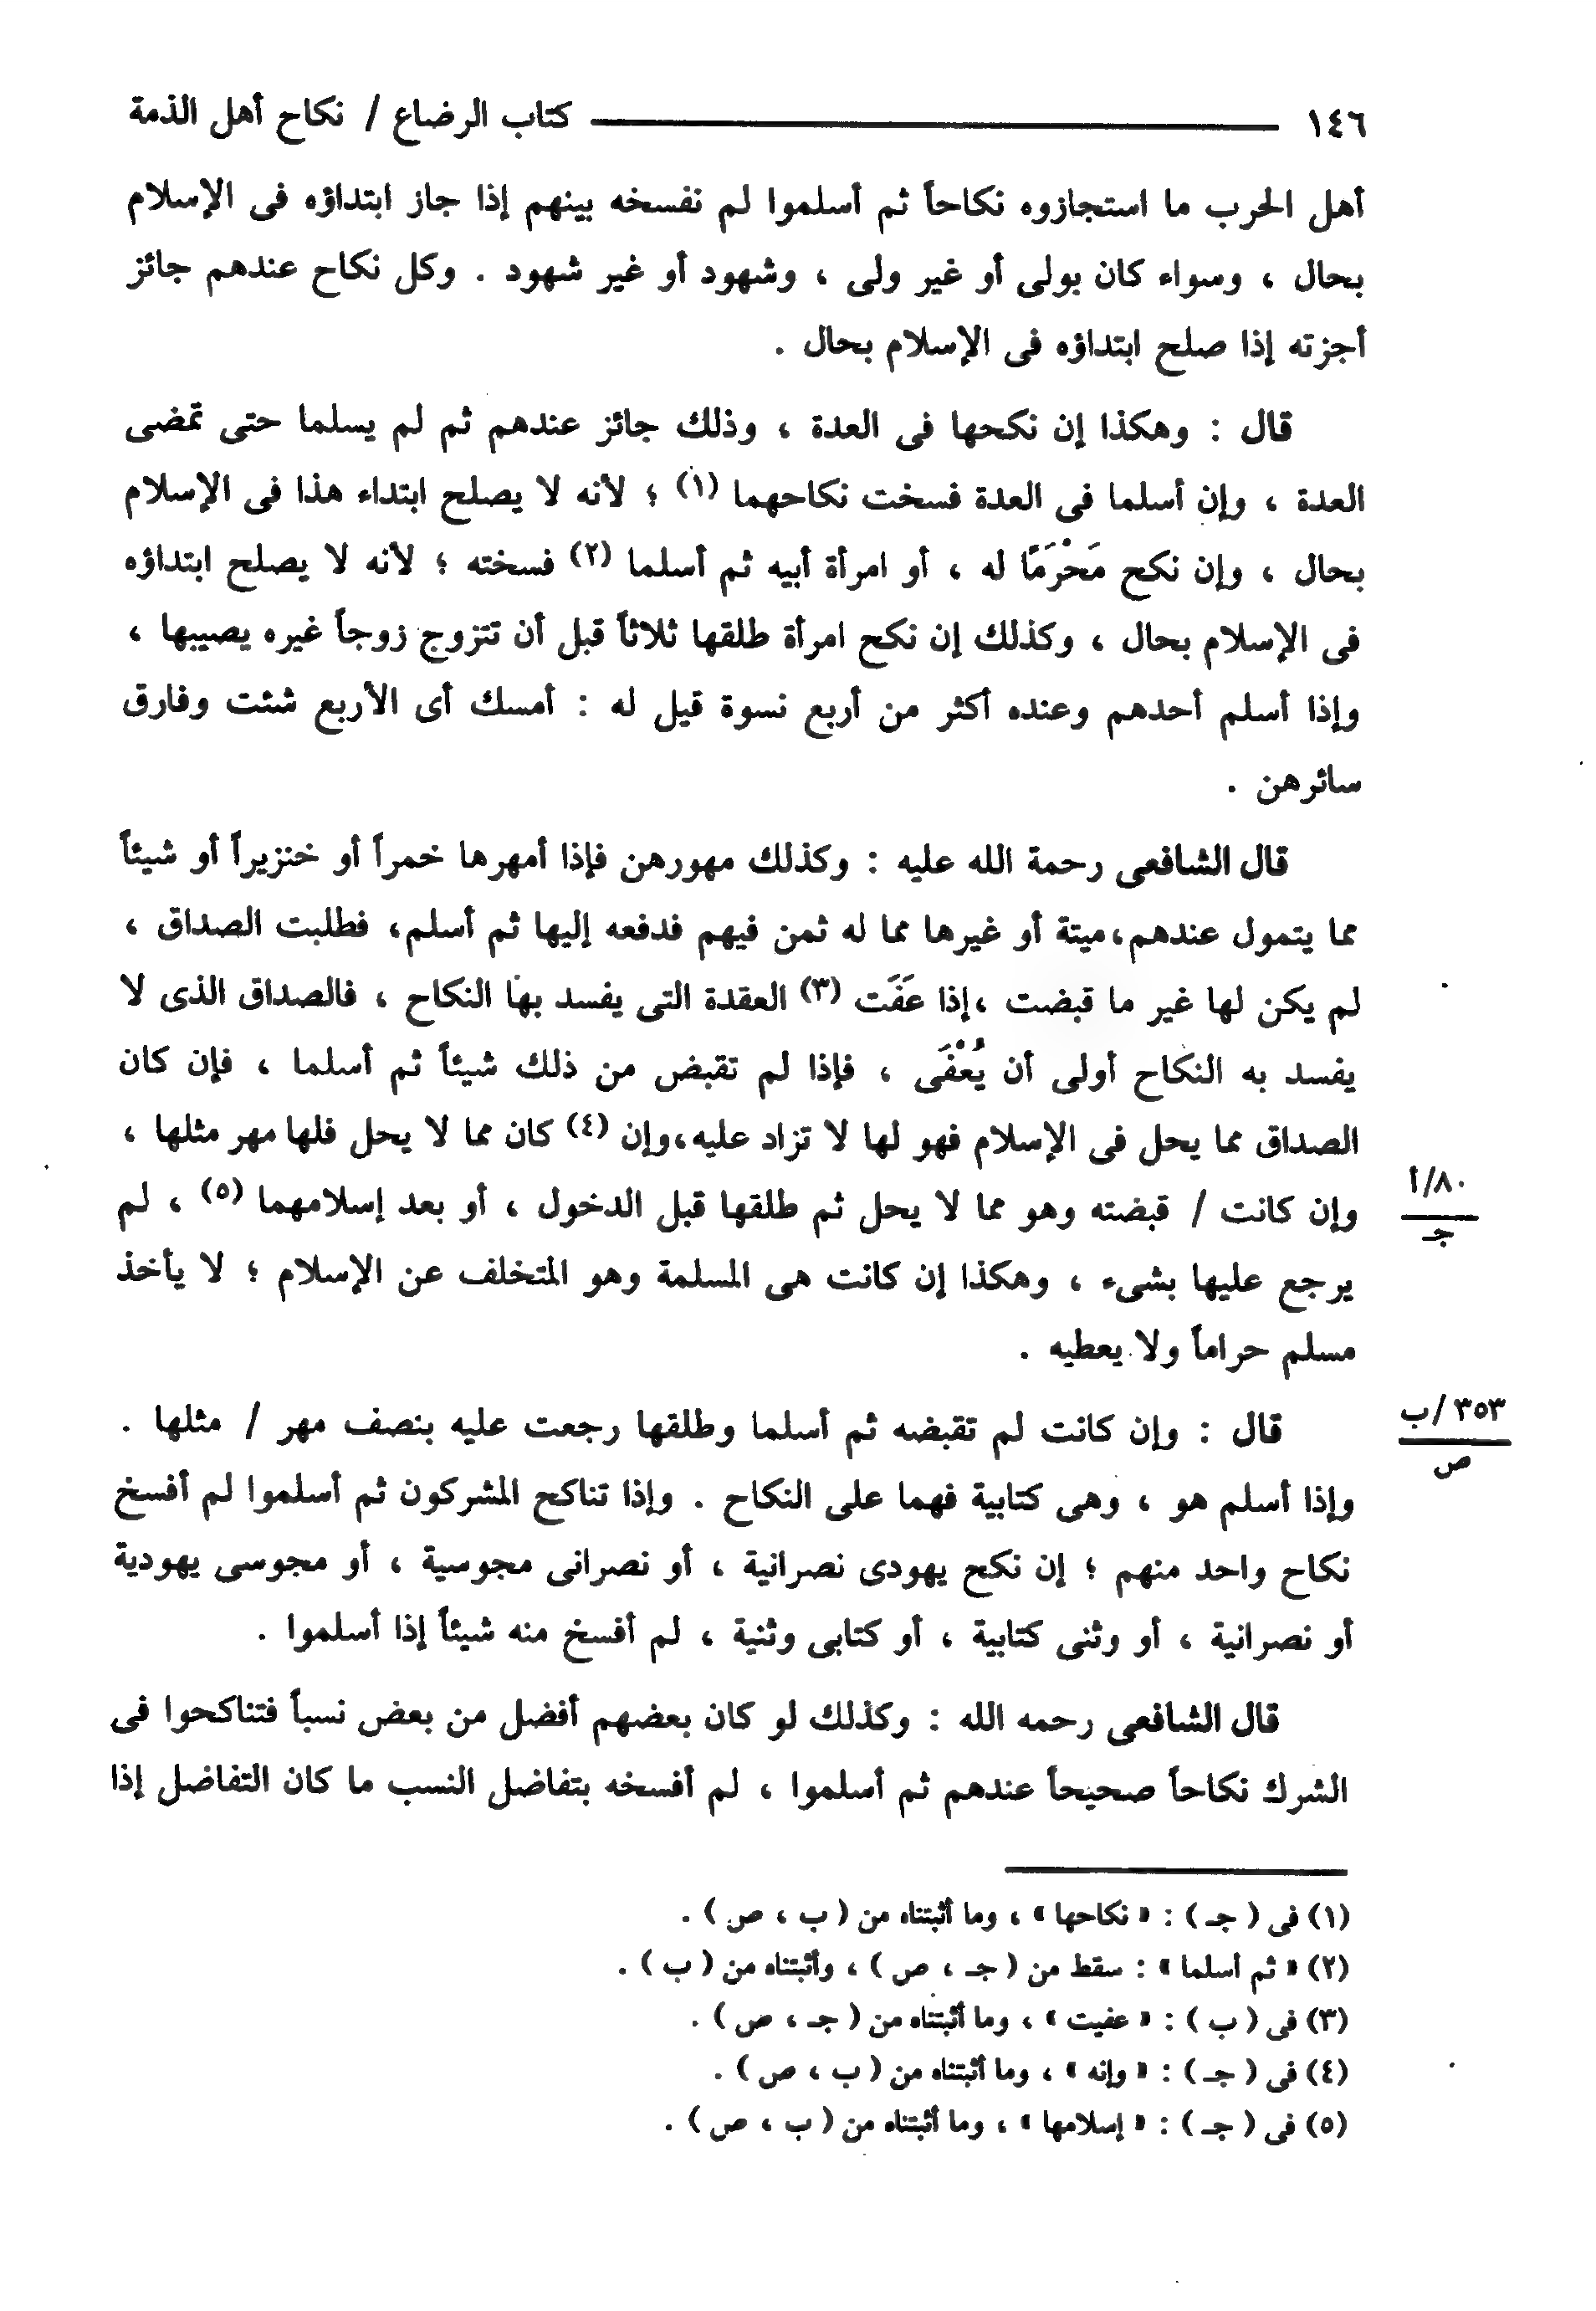 ١٤٦ كتاب الرضاع / نكاح أهل الذمة
أهل الحرب ما استجازوه نكاحاً ثم أسلموا لم نفسخه بينهم إذا جاز ابتداؤه فى الإسلام
بحال ، وسواء كان بولى أو غير ولى ، وشهود أو غير شهود . وكل نكاح عندهم جائز
أجزته إذا صلح ابتداؤه فى الإسلام بحال .
قال : وهكذا إن نكحها فى العدة ، وذلك جائز عندهم ثم لم يسلما حتى تمضى
العدة ، وإن أسلما فى العدة فسخت نكاحهما (١) ؛ لأنه لا يصلح ابتداء هذا فى الإسلام
بحال ، وإن نكح مَحْرَمًا له ، أو امرأة أبيه ثم أسلما (٢) فسخته ؛ لأنه لا يصلح ابتداؤه
فى الإسلام بحال ، وكذلك إن نكح امرأة طلقها ثلاثاً قبل أن تتزوج زوجاً غيره يصيبها ،
وإذا أسلم أحدهم وعنده أكثر من أربع نسوة قيل له : أمسك أى الأربع شئت وفارق
سائرهن .
قال الشافعى رحمة الله عليه : وكذلك مهورهن فإذا أمهرها خمراً أو خنزيراً أو شيئاً
مما يتمول عندهم،ميتة أو غيرها مما له ثمن فيهم فدفعه إليها ثم أسلم، فطلبت الصداق ،
لم يكن لها غير ما قبضت ،إذا عَفَت (٣) العقدة التى يفسد بها النكاح ، فالصداق الذى لا
يفسد به النكاح أولى أن يُعْفَى ، فإذا لم تقبض من ذلك شيئاً ثم أسلما ، فإن كان
الصداق مما يحل فى الإسلام فهو لها لا تزاد عليه،وإن (٤) كان مما لا يحل فلها مهر مثلها ،
وإن كانت / قبضته وهو مما لا يحل ثم طلقها قبل الدخول ، أو بعد إسلامهما (٥) ، لم
٨٠/أ
جـ
يرجع عليها بشىء ، وهكذا إن كانت هى المسلمة وهو المتخلف عن الإسلام ؛ لا يأخذ
مسلم حراماً ولا يعطيه .
قال : وإن كانت لم تقبضه ثم أسلما وطلقها رجعت عليه بنصف مهر / مثلها .
٣٥٣/ب
ص
وإذا أسلم هو ، وهى كتابية فهما على النكاح . وإذا تناكح المشركون ثم أسلموا لم أفسخ
نكاح واحد منهم ؛ إن نكح يهودى نصرانية ، أو نصرانى مجوسية ، أو مجوسى يهودية
أو نصرانية ، أو وثنى كتابية ، أو كتابى وثنية ، لم أفسخ منه شيئاً إذا أسلموا .
قال الشافعى رحمه الله : وكذلك لو كان بعضهم أفضل من بعض نسباً فتناكحوا فى
الشرك نكاحاً صحيحاً عندهم ثم أسلموا ، لم أفسخه بتفاضل النسب ما كان التفاضل إذا
(١) فى ( جـ ) : « نكاحها » ، وما أثبتناه من ( ب ، ص ) .
(٢) « ثم أسلما » : سقط من ( جـ ، ص ) ، وأثبتناه من ( ب ) .
(٣) فى ( ب ) : « عفيت » ، وما أثبتناه من ( جـ ، ص ) .
(٤) فى ( جـ ) : « وإنه » ، وما أثبتناه من ( ب ، ص ) .
(٥) فى ( جـ ) : « إسلامها » ، وما أثبتناه من ( ب ، ص ) .